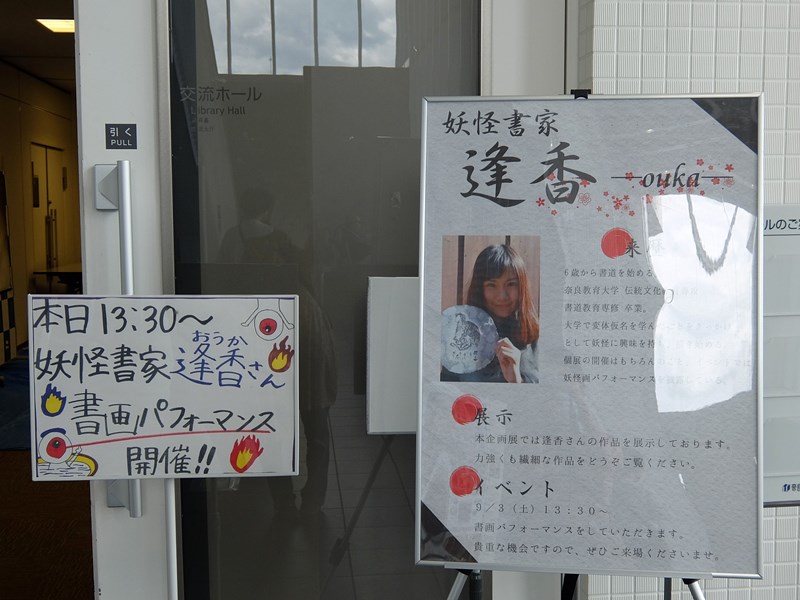 交流ホール
Library Hall
引く
PULL
本日13:30～
妖怪書家
おうか
逢香さん
書画パフォーマンス
開催!!
妖怪書家
逢香
—ouka—
来
6歳から書道を始める
奈良教育大学 伝統文化
書道教育専修 卒業。
大学で変体仮名を学ん
として妖怪に興味を持
個展の開催はもちろん
妖怪画パフォーマンス
展示
本企画展では逢香さんの作品を展示しております。
力強くも繊細な作品をどうぞご覧ください。
イベント
9／3（土）13：30～
書画パフォーマンスをしていただきます。
貴重な機会ですので、ぜひご来場くださいませ。
ルのご